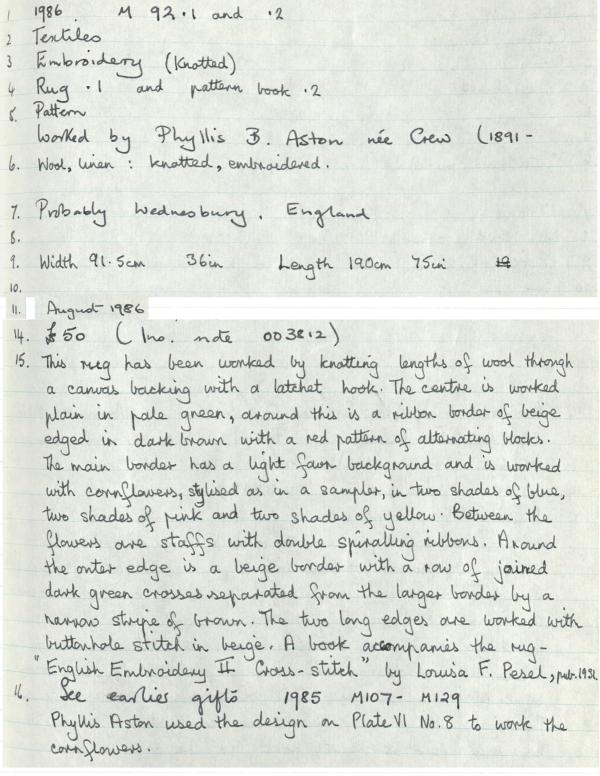 1 1986 M 92.1 and .2
2 Textiles
3 Embroidery (Knotted)
4 Rug .1 and pattern book .2
5. Pattern
Worked by Phyllis B. Aston née Crew (1891 -
6. Wool, linen : knotted, embroidered.
7. Probably Wednesbury, England
8.
9. Width 91.5cm 36in Length 190cm 75in 19
10.
11. August 1986
14. £50 (Inc. note 003812)
15. This rug has been worked by knotting lengths of wool through
a canvas backing with a latchet hook. The centre is worked
plain in pale green, around this is a ribbon border of beige
edged in dark brown with a red pattern of alternating blocks.
The main border has a light fawn background and is worked
with cornflowers, stylised as in a sampler, in two shades of blue,
two shades of pink and two shades of yellow. Between the
flowers are staffs with double spiralling ribbons. Around
the outer edge is a beige border with a row of joined
dark green crosses separated from the larger border by a
narrow stripe of brown. The two long edges are worked with
buttonhole stitch in beige. A book accompanies the rug -
"English Embroidery II Cross-stitch" by Louisa F. Pesel, pub. 1931
16. See earlier gifts 1985 M107 - M129
Phyllis Aston used the design on Plate VI No. 8 to work the
cornflowers.